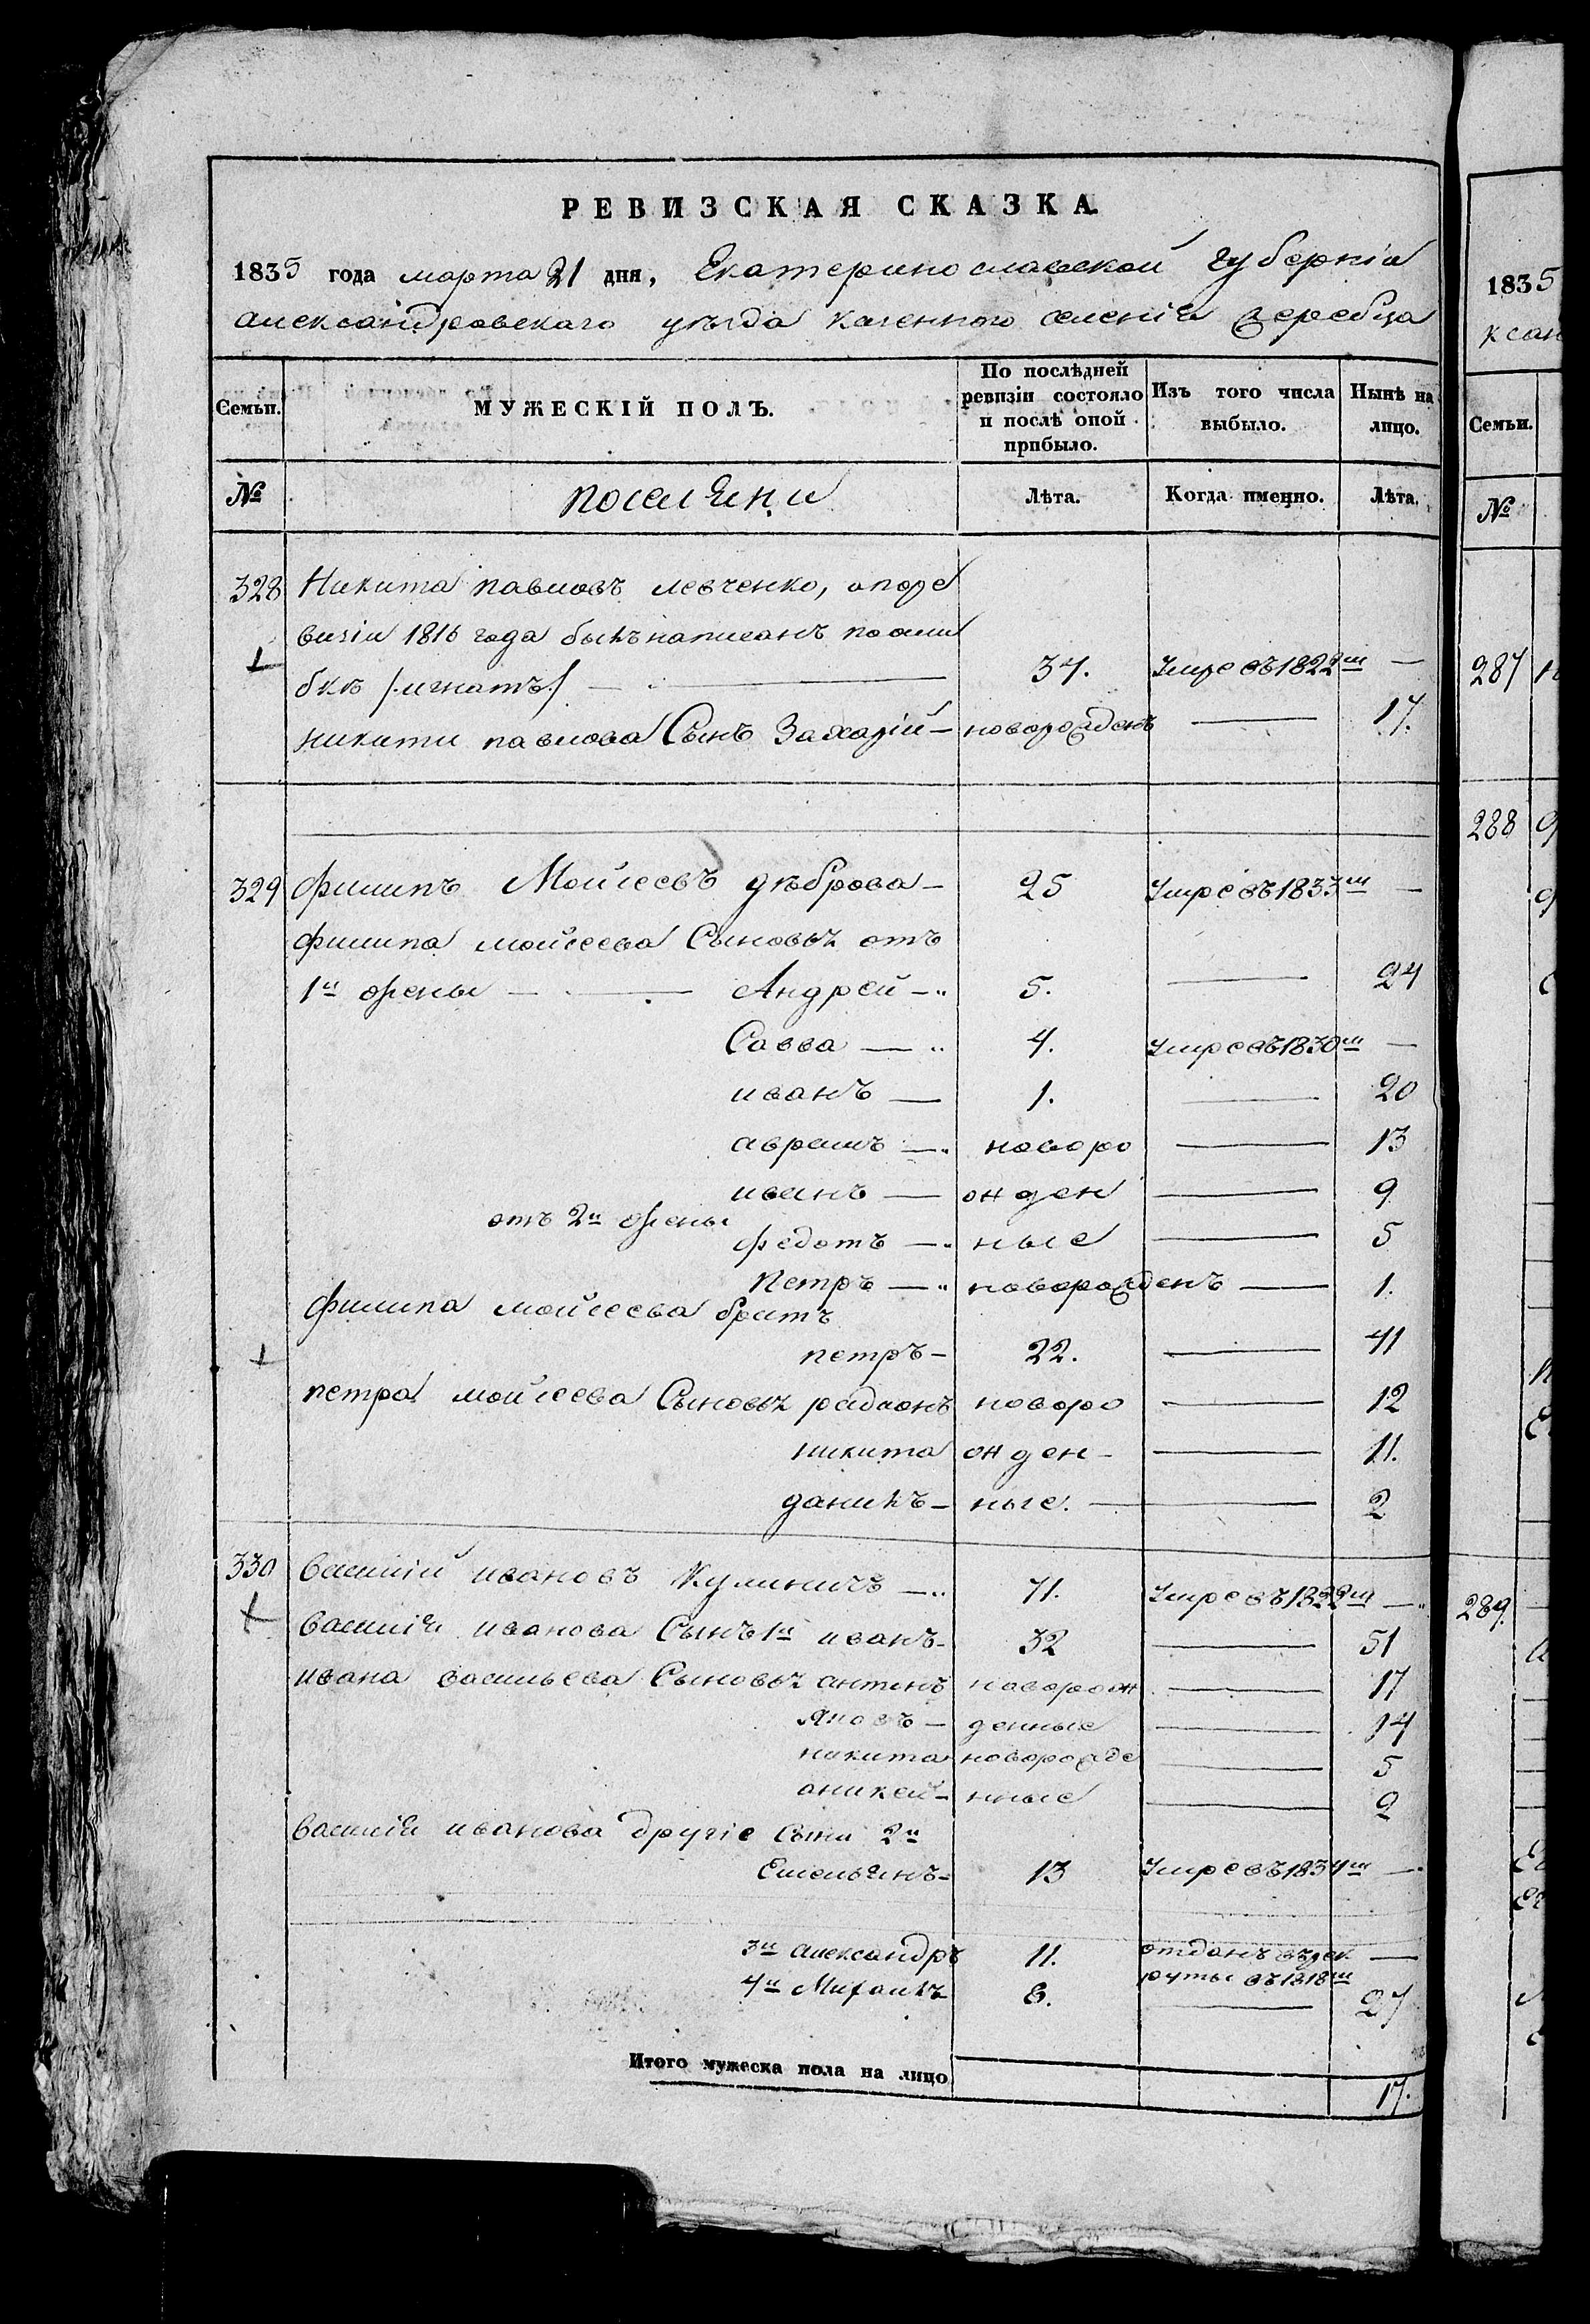 РЕВИЗСКАЯ СКАЗКА.
1835 года марта 21 дня, Екатеринославской губернія
александровскаго уѣзда казенного селенія Жеребца
Семьи. МУЖЕСКІЙ ПОЛЪ. По послѣдней ревизіи состояло и послѣ оной прибыло. Изъ того числа выбыло. Нынѣ на лицо.
№ поселяни Лѣта. Когда именно. Лѣта.
328 Никита павловъ левченко, опоре
визіи 1816 года былъ написанъ по оши
бкѣ /:игнатъ:/ — 37. Умре въ 1822м —
никити павлова Сынъ Захарій — новорожденъ — 17.
329 Филипъ Мойсеевъ дѣброва — 25 Умре въ 1833м —
филипа мойсеева Сыновья отъ
1й жены — Андрей — 5. — 24
Савва — 4. Умре въ 1830м —
иванъ — 1. — 20
аврамъ — новоро — 13
иванъ — жден — 9
отъ 2й жены
федотъ — ные — 5
Петръ — новорожденъ — 1.
филипа мойсеева братъ
петръ — 22. — 41
петра мойсеева Сыновья радионъ новоро — 12
никита жден — 11.
данилъ — ные. — 2
330 Василій ивановъ Кулиничъ — 71. Умре въ 1822м —
Василія иванова Сынъ 1й иванъ — 32 — 51
ивана васильева Сыновья антонъ новорож — 17
Яковъ — денные — 14
никита новорожде — 5
аникей — нные — 2
василія иванова другіе сыни 2й
Емельянъ — 13 Умре въ 1834м —
3й александръ 11. отданъ врек —
4й Михаилъ 8. руты въ 1818м
— 27
Итого мужеска пола на лицо 17.
1835
ксан
Семьи.
№
287
288
289